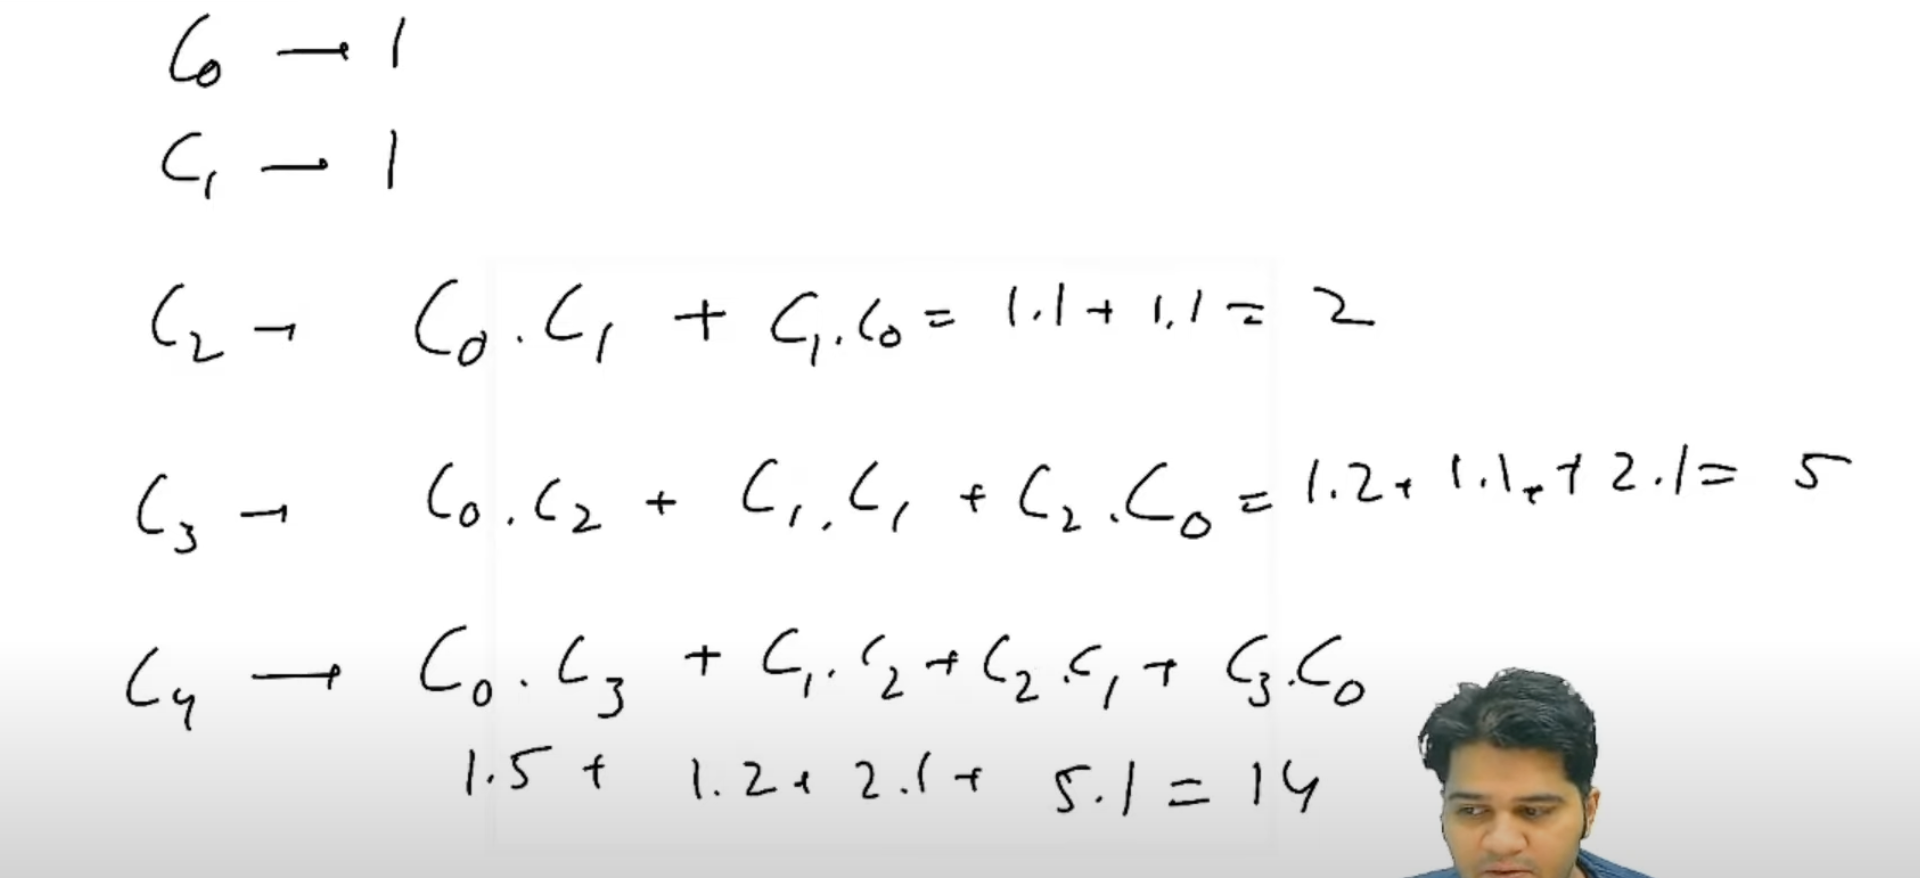 C₀ → 1
C₁ → 1
C₂ → C₀ . C₁ + C₁ . C₀ = 1.1 + 1.1 = 2
C₃ → C₀ . C₂ + C₁ . C₁ + C₂ . C₀ = 1.2 + 1.1 + + 2.1 = 5
C₄ → C₀ . C₃ + C₁ . C₂ + C₂ . C₁ + C₃ . C₀
1.5 + 1.2 + 2.1 + 5.1 = 14